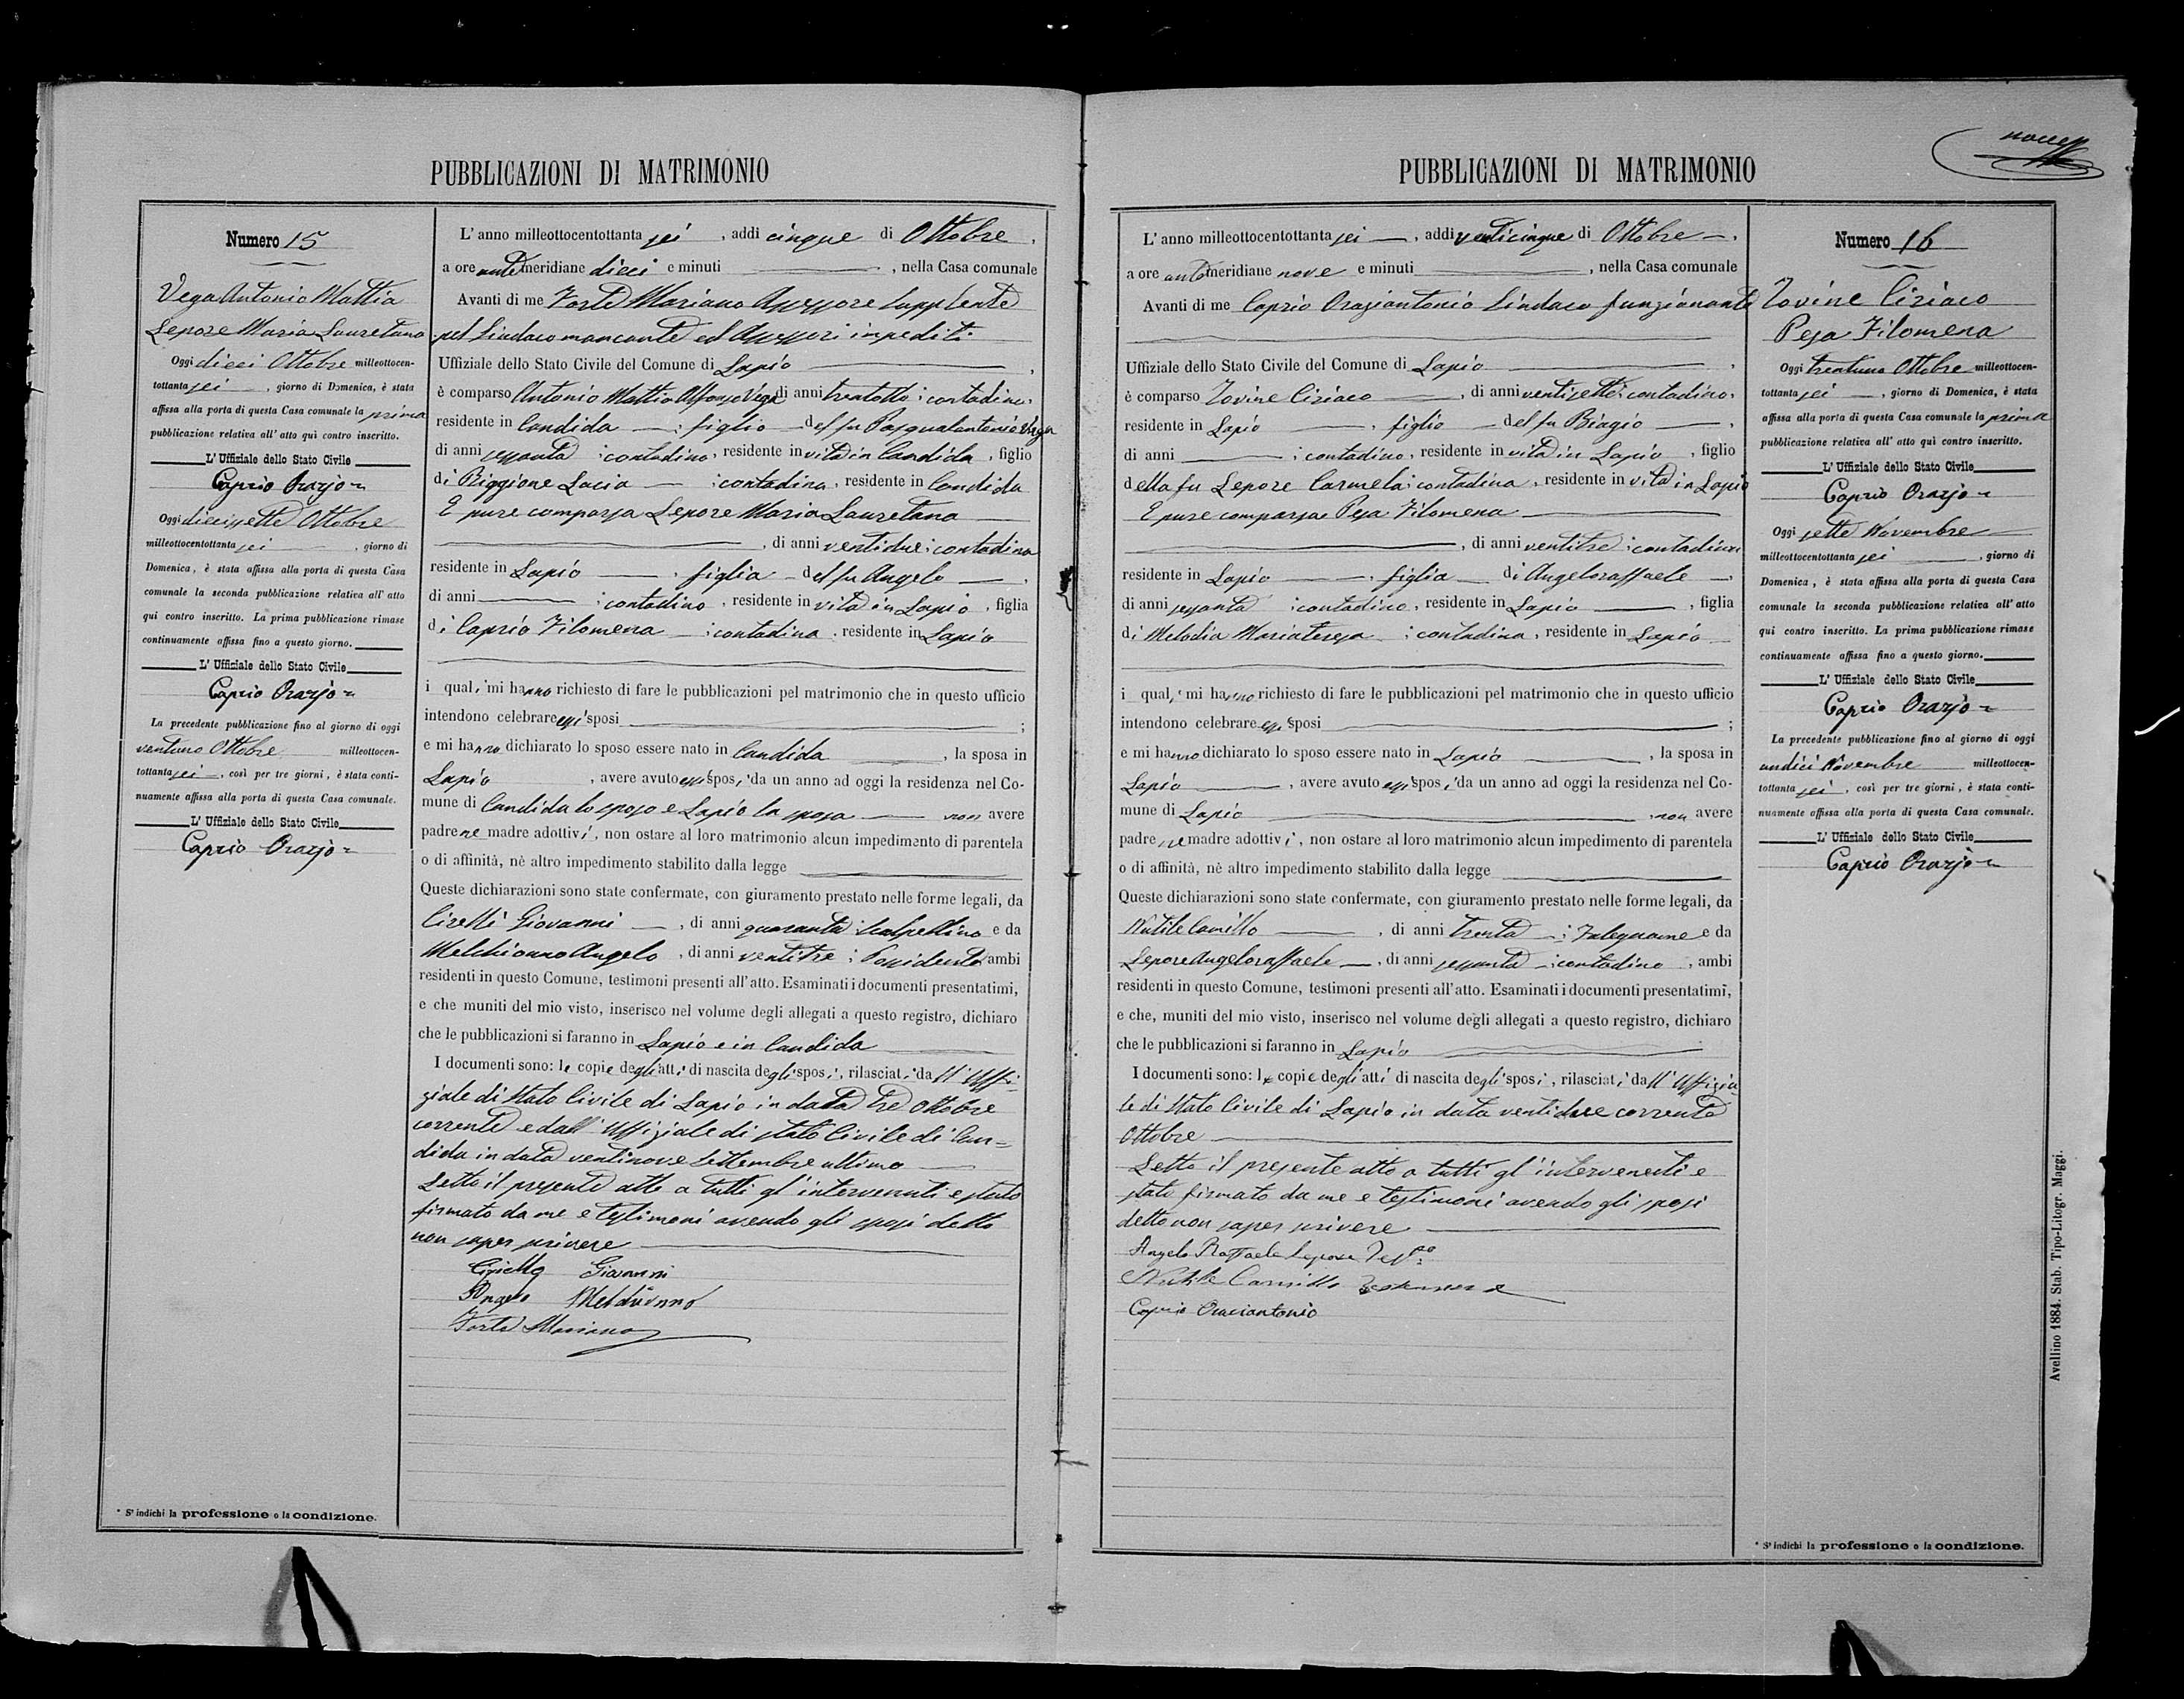 PUBBLICAZIONI DI MATRIMONIO
Numero 15
Vega Antonio Mattia
Lepore Maria Lauretana
Oggi dieci Ottobre milleottocen-
tottanta sei, giorno di Domenica, è stata
affissa alla porta di questa Casa comunale la prima
pubblicazione relativa all' atto quì contro inscritto.
L' Uffiziale dello Stato Civile
Caprio Orazio
Oggi diecisette Ottobre
milleottocentottanta sei, giorno di
Domenica, è stata affissa alla porta di questa Casa
comunale la seconda pubblicazione relativa all' atto
quì contro inscritto. La prima pubblicazione rimase
continuamente affissa fino a questo giorno.
L' Uffiziale dello Stato Civile
Caprio Orazio
La precedente pubblicazione fino al giorno di oggi
ventuno Ottobre milleottocen-
tottanta sei, così per tre giorni, è stata conti-
nuamente affissa alla porta di questa Casa comunale.
L' Uffiziale dello Stato Civile
Caprio Orazio
* S' indichi la professione o la condizione.
L' anno milleottocentottanta sei, addì cinque di Ottobre,
a ore antimeridiane dieci e minuti, nella Casa comunale
Avanti di me Forte Mariano Assessore supplente
pel Sindaco mancante ed Assessori impediti
Uffiziale dello Stato Civile del Comune di Lapio,
è comparso Antonio Mattia Alfonso Vega di anni trentotto; contadino,
residente in Candida; figlio del fu Pasqualantonio Vega
di anni sessanta; contadino, residente in vita in Candida, figlio
di Riggione Lucia; contadina, residente in Candida
E pure comparsa Lepore Maria Lauretana
, di anni ventidue; contadina
residente in Lapio, figlia del fu Angelo,
di anni; contadino, residente in vita in Lapio, figlia
di Caprio Filomena; contadina, residente in Lapio
i quali mi hanno richiesto di fare le pubblicazioni pel matrimonio che in questo ufficio
intendono celebrare essi sposi;
e mi hanno dichiarato lo sposo essere nato in Candida, la sposa in
Lapio, avere avuto essi sposi da un anno ad oggi la residenza nel Co-
mune di Candida lo sposo e Lapio la sposa non avere
padre ne madre adottivi, non ostare al loro matrimonio alcun impedimento di parentela
o di affinità, nè altro impedimento stabilito dalla legge
Queste dichiarazioni sono state confermate, con giuramento prestato nelle forme legali, da
Cirelli Giovanni, di anni quaranta; scalpellino e da
Melchionno Angelo, di anni ventitre; Possidente ambi
residenti in questo Comune, testimoni presenti all' atto. Esaminati i documenti presentatimi,
e che muniti del mio visto, inserisco nel volume degli allegati a questo registro, dichiaro
che le pubblicazioni si faranno in Lapio e in Candida
I documenti sono: le copie degli atti di nascita degli sposi, rilasciati dall' Uffi-
ziale di Stato Civile di Lapio in data tre Ottobre
corrente e dall' Uffiziale di stato Civile di Can-
dida in data ventinove Settembre ultimo
Letto il presente atto a tutti gl' intervenuti e stato
firmato da me e testimoni avendo gli sposi detto
non saper scrivere
Giovanni
Angelo Melchionno
Forte Mariano
PUBBLICAZIONI DI MATRIMONIO
L' anno milleottocentottanta sei, addì venticinque di Ottobre,
a ore antimeridiane nove e minuti, nella Casa comunale
Avanti di me Caprio Oraziantonio Sindaco funzionante
Uffiziale dello Stato Civile del Comune di Lapio,
è comparso Iovine Ciriaco, di anni ventisette; contadino,
residente in Lapio, figlio del fu Biagio,
di anni; contadino, residente in vita in Lapio, figlio
della fu Lepore Carmela; contadina, residente in vita in Lapio
E pure comparsa Pesa Filomena
, di anni ventitre; contadina
residente in Lapio, figlia di Angeloraffaele,
di anni sessanta; contadino, residente in Lapio, figlia
di Melodia Mariateresa; contadina, residente in Lapio
i quali mi hanno richiesto di fare le pubblicazioni pel matrimonio che in questo ufficio
intendono celebrare essi sposi;
e mi hanno dichiarato lo sposo essere nato in Lapio, la sposa in
Lapio, avere avuto essi sposi da un anno ad oggi la residenza nel Co-
mune di Lapio, non avere
padre ne madre adottivi, non ostare al loro matrimonio alcun impedimento di parentela
o di affinità, nè altro impedimento stabilito dalla legge
Queste dichiarazioni sono state confermate, con giuramento prestato nelle forme legali, da
Nutile Camillo, di anni trenta; Falegname e da
Lepore Angeloraffaele, di anni sessanta; contadino, ambi
residenti in questo Comune, testimoni presenti all' atto. Esaminati i documenti presentatimi,
e che, muniti del mio visto, inserisco nel volume degli allegati a questo registro, dichiaro
che le pubblicazioni si faranno in Lapio
I documenti sono: le copie degli atti di nascita degli sposi, rilasciati dall' Uffizia-
le di Stato Civile di Lapio in data ventidue corrente
Ottobre
Letto il presente atto a tutti gl' intervenenti e
stato firmato da me e testimoni avendo gli sposi
detto non saper scrivere
Angelo Raffaele Lepore
Nutile Camillo Testimone
Caprio Oraziantonio
Numero 16
Iovine Ciriaco
Pesa Filomena
Oggi trentuno Ottobre milleottocen-
tottanta sei, giorno di Domenica, è stata
affissa alla porta di questa Casa comunale la prima
pubblicazione relativa all' atto quì contro inscritto.
L' Uffiziale dello Stato Civile
Caprio Orazio
Oggi sette Novembre
milleottocentottanta sei, giorno di
Domenica, è stata affissa alla porta di questa Casa
comunale la seconda pubblicazione relativa all' atto
quì contro inscritto. La prima pubblicazione rimase
continuamente affissa fino a questo giorno.
L' Uffiziale dello Stato Civile
Caprio Orazio
La precedente pubblicazione fino al giorno di oggi
undici Novembre milleottocen-
tottanta sei, così per tre giorni, è stata conti-
nuamente affissa alla porta di questa Casa comunale.
L' Uffiziale dello Stato Civile
Caprio Orazio
* S' indichi la professione o la condizione.
Avellino 1884. Stab. Tipo-Litogr. Maggi.